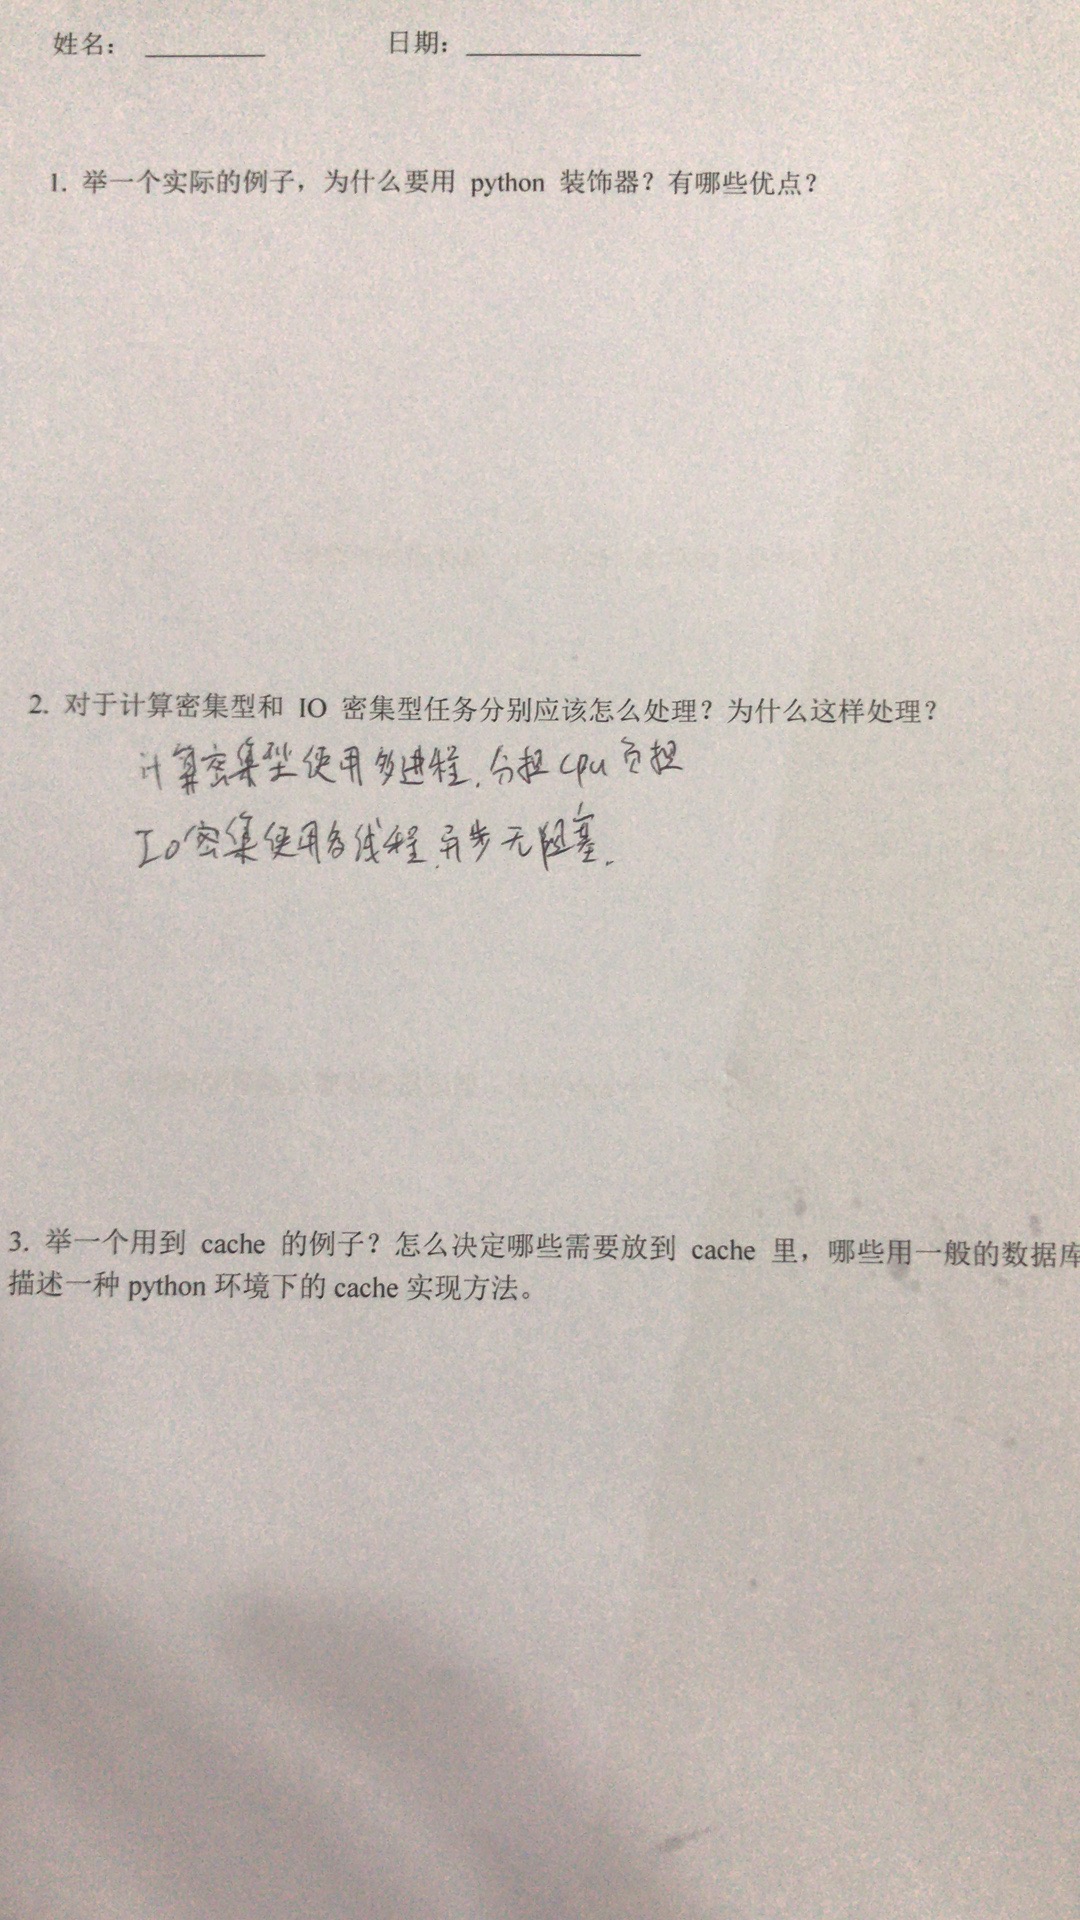 姓名： ________ 日期： ____________
1. 举一个实际的例子，为什么要用 python 装饰器？有哪些优点？
2. 对于计算密集型和 IO 密集型任务分别应该怎么处理？为什么这样处理？
计算密集型使用多进程,分担cpu负担
Io密集使用多线程,异步无阻塞.
3. 举一个用到 cache 的例子？怎么决定哪些需要放到 cache 里，哪些用一般的数据库
描述一种 python 环境下的 cache 实现方法。